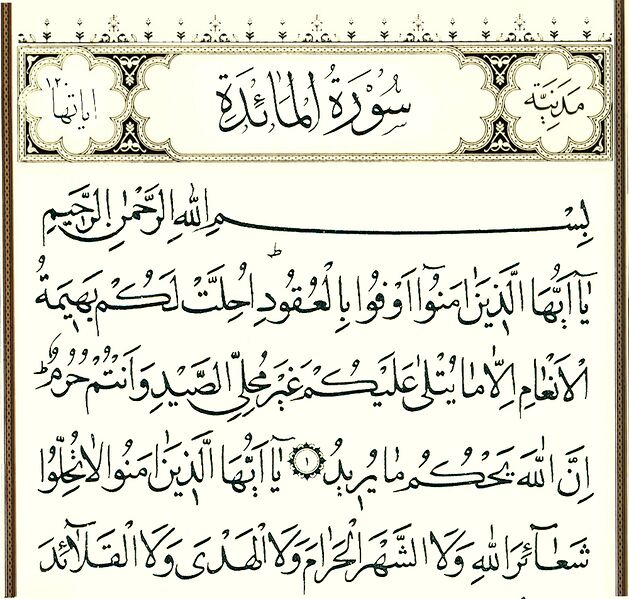 مَدَنِيَّة
سُورَةُ الْمَائِدَةِ
اٰيَاتُهَا ١٢٠
بِسْمِ اللّٰهِ الرَّحْمٰنِ الرَّحِيمِ
يَٓا اَيُّهَا الَّذِينَ اٰمَنُٓوا اَوْفُوا بِالْعُقُودِۜ اُحِلَّتْ لَكُمْ بَهِيمَةُ
الْاَنْعَامِ اِلَّا مَا يُتْلٰى عَلَيْكُمْ غَيْرَ مُحِلِّي الصَّيْدِ وَاَنْتُمْ حُرُمٌۜ
اِنَّ اللّٰهَ يَحْكُمُ مَا يُرِيدُ ١ يَٓا اَيُّهَا الَّذِينَ اٰمَنُوا لَا تُحِلُّوا
شَعَٓائِرَ اللّٰهِ وَلَا الشَّهْرَ الْحَرَامَ وَلَا الْهَدْيَ وَلَا الْقَلَٓائِدَ